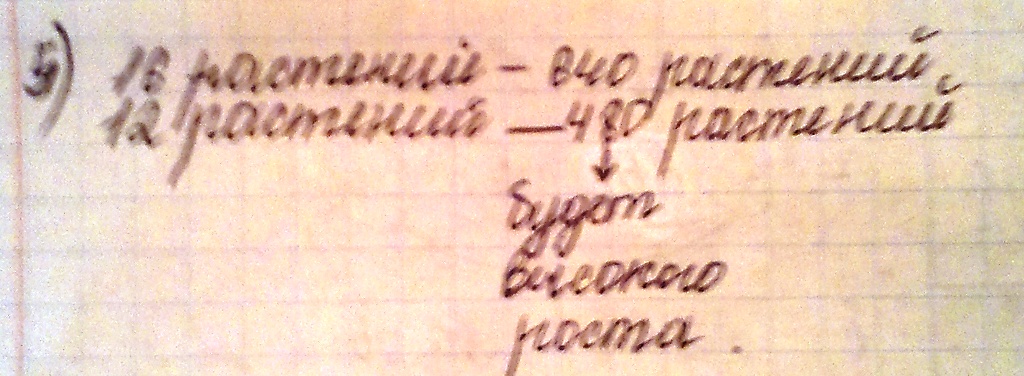 5) 16 растений – 640 растений,
12 растений — 480 растений
будет
высокого
роста.